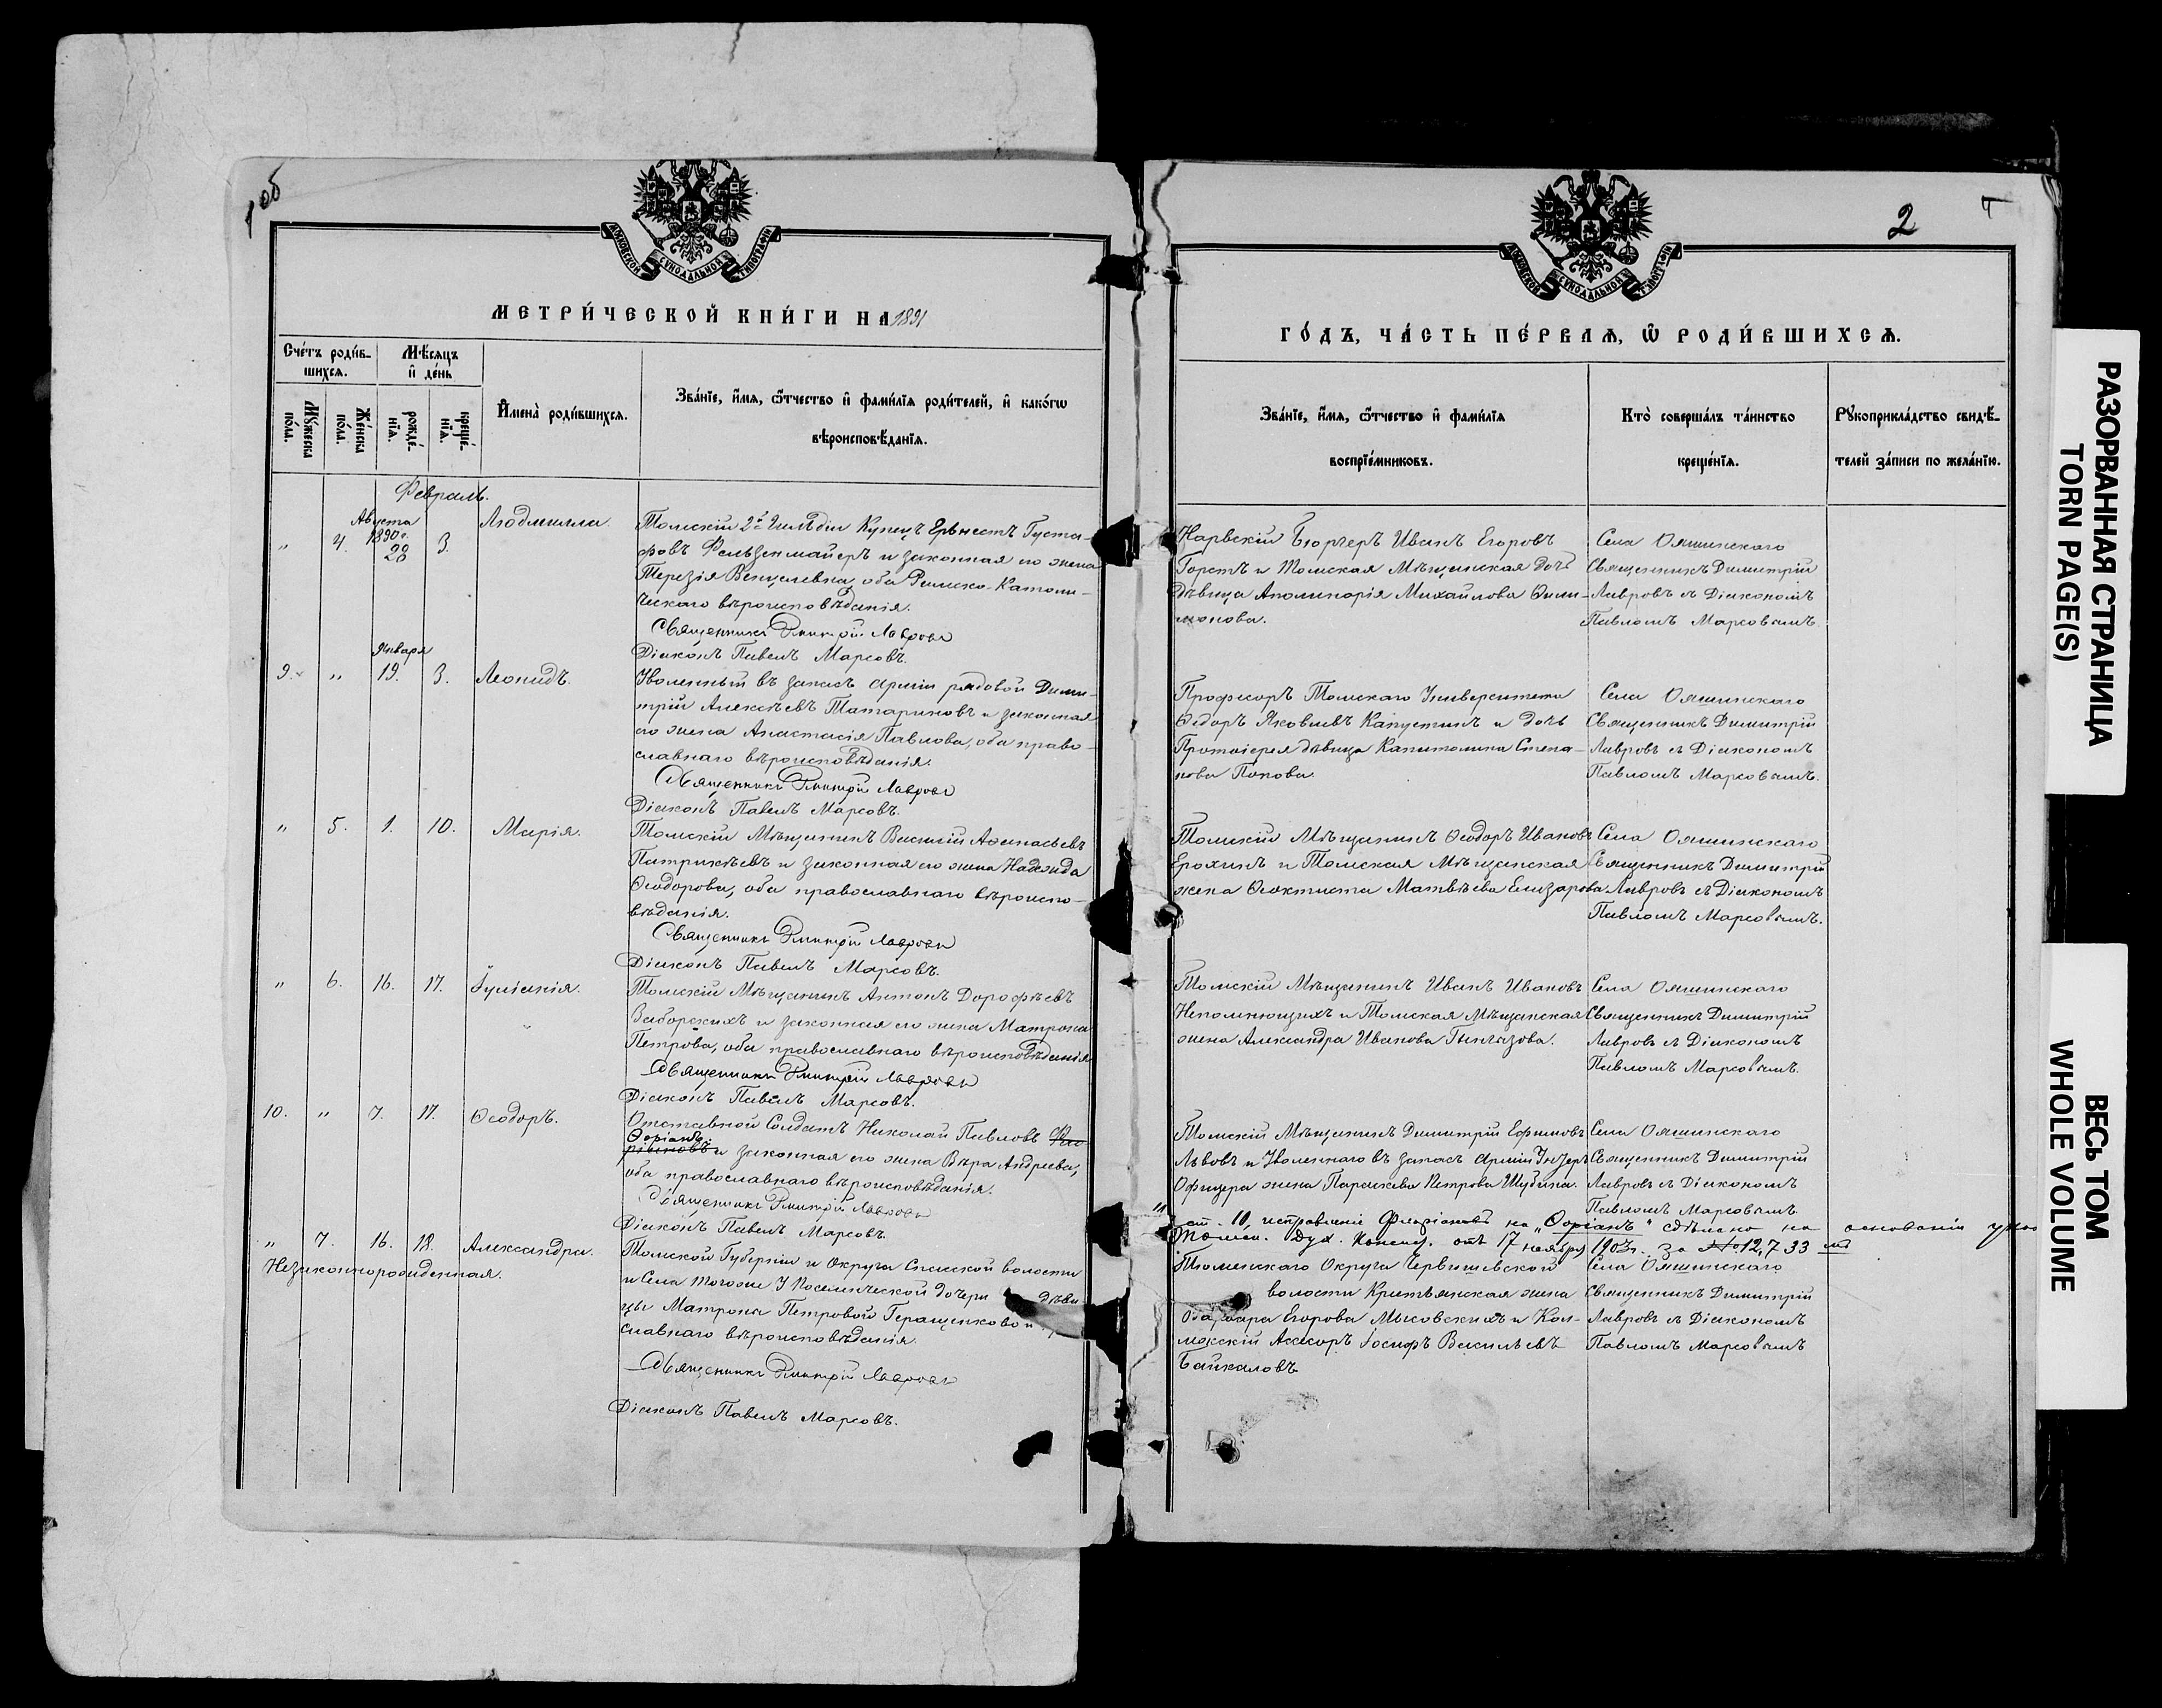 1об
МОСКОВСКОЙ СУНОДАЛЬНОЙ ТИПОГРАФІИ
МЕТРИ́ЧЕСКОЙ КНИ́ГИ НА 1891
Сче́тъ роди́в-
шихсѧ.
Мѣ́сѧцъ
и҆ де́нь
Мꙋ́жеска
по́ла.
Же́нска
по́ла.
рожде́-
нїѧ.
креще́-
нїѧ.
И҆мена̀ роди́вшихсѧ.
Зва́нїе, и҆́мѧ, ѻ҆́тчество и҆ фами́лїѧ роди́телей, и҆ како́гѡ
вѣроисповѣ́данїѧ.
Февраль.
" 4. Августа 1890 г. 28 3. Людмилла
Томскій 2й Гильдіи Купецъ Ернестъ Густа-
фовъ Фельзенмайеръ и законная его жена
Терезія Венцелевна, оба Римско-Католи-
ческаго вѣроисповѣданія.
Священникъ Димитрій Лавровъ
Діаконъ Павелъ Марсовъ.
9. " Января 19. 3. Леонидъ.
Уволенный въ запасъ арміи рядовой Дими-
трій Алексѣевъ Татариновъ и законная
его жена Анастасія Павлова, оба право-
славнаго вѣроисповѣданія.
Священникъ Димитрій Лавровъ
Діаконъ Павелъ Марсовъ.
" 5. 1. 10. Марія.
Томскій Мѣщанинъ Василій Аѳанасьевъ
Патрикѣевъ и законная его жена Надежда
Ѳеодорова, оба православнаго вѣроиспо-
вѣданія.
Священникъ Димитрій Лавровъ
Діаконъ Павелъ Марсовъ.
" 6. 16. 17. Іуліанія.
Томскій Мѣщанинъ Антонъ Дорофѣевъ
Заборскихъ и законная его жена Матрона
Петрова, оба православнаго вѣроисповѣданія
Священникъ Димитрій Лавровъ
Діаконъ Павелъ Марсовъ.
10. " 7. 17. Ѳеодоръ.
Отставной Солдатъ Николай Павловъ
Ѳоріанъ.
и законная его жена Вѣра Андреева,
оба православнаго вѣроисповѣданія.
Священникъ Димитрій Лавровъ
Діаконъ Павелъ Марсовъ.
" 7. 16. 18. Александра.
Незаконнорожденная.
Томской Губерніи и Округа Спасской волости
и Села тогоже У Поселенческой дочери дѣви-
цы Матроны Петровой Геращенковой
славнаго вѣроисповѣданія.
Священникъ Димитрій Лавровъ
Діаконъ Павелъ Марсовъ.
2
МОСКОВСКОЙ СУНОДАЛЬНОЙ ТИПОГРАФІИ
ГО́ДЪ, ЧА́СТЬ ПЕ́РВАѦ, Ѡ҆ РОДИ́ВШИХСѦ.
Зва́нїе, и҆́мѧ, ѻ҆́тчество и҆ фами́лїѧ
воспрїе́мниковъ.
Кто̀ соверша́лъ та́инство
креще́нїѧ.
Рꙋкоприкла́дство свидѣ́-
телей за́писи по жела́нїю.
Нарвскій Бюргеръ Иванъ Егоровъ
Горстъ и Томская Мѣщанская дочь
дѣвица Аполинарія Михайлова Фили-
монова.
Села Ояшинскаго
Священникъ Димитрій
Лавровъ съ Діакономъ
Павломъ Марсовымъ.
Професоръ Томскаго Университета
Ѳедоръ Яковлевъ Капустинъ и дочь
Протоіерея дѣвица Капитолина Степа-
нова Попова.
Села Ояшинскаго
Священникъ Димитрій
Лавровъ съ Діакономъ
Павломъ Марсовымъ.
Томскій Мѣщанинъ Ѳеодоръ Ивановъ
Ерохинъ и Томская Мѣщанская
жена Ѳеоктиста Матвѣева Елизарова.
Села Ояшинскаго
Священникъ Димитрій
Лавровъ съ Діакономъ
Павломъ Марсовымъ.
Томскій Мѣщанинъ Иванъ Ивановъ
Непомнющихъ и Томская Мѣщанская
жена Александра Иванова
Села Ояшинскаго
Священникъ Димитрій
Лавровъ съ Діакономъ
Павломъ Марсовымъ.
Томскій Мѣщанинъ Димитрій Ефимовъ
Львовъ и Уволеннаго въ запасъ арміи Унтеръ
Офицера жена Параскева Петрова Шубина.
Села Ояшинскаго
Священникъ Димитрій
Лавровъ съ Діакономъ
Павломъ Марсовымъ
ст. 10, исправленіе на „Ѳоріанъ" сдѣлано на основаніи указа
Томск. Дух. Консист. отъ 17 ноября 1903 г. за № 12,733
Тюменскаго Округа Червишевской
волости Крестьянская жена
Егорова Мысовскихъ и Кол-
лежскій Асесоръ Іосифъ Васильевъ
Байкаловъ
Села Ояшинскаго
Священникъ Димитрій
Лавровъ съ Діакономъ
Павломъ Марсовымъ
РАЗОРВАННАЯ СТРАНИЦА
TORN PAGE(S)
ВЕСЬ ТОМ
WHOLE VOLUME